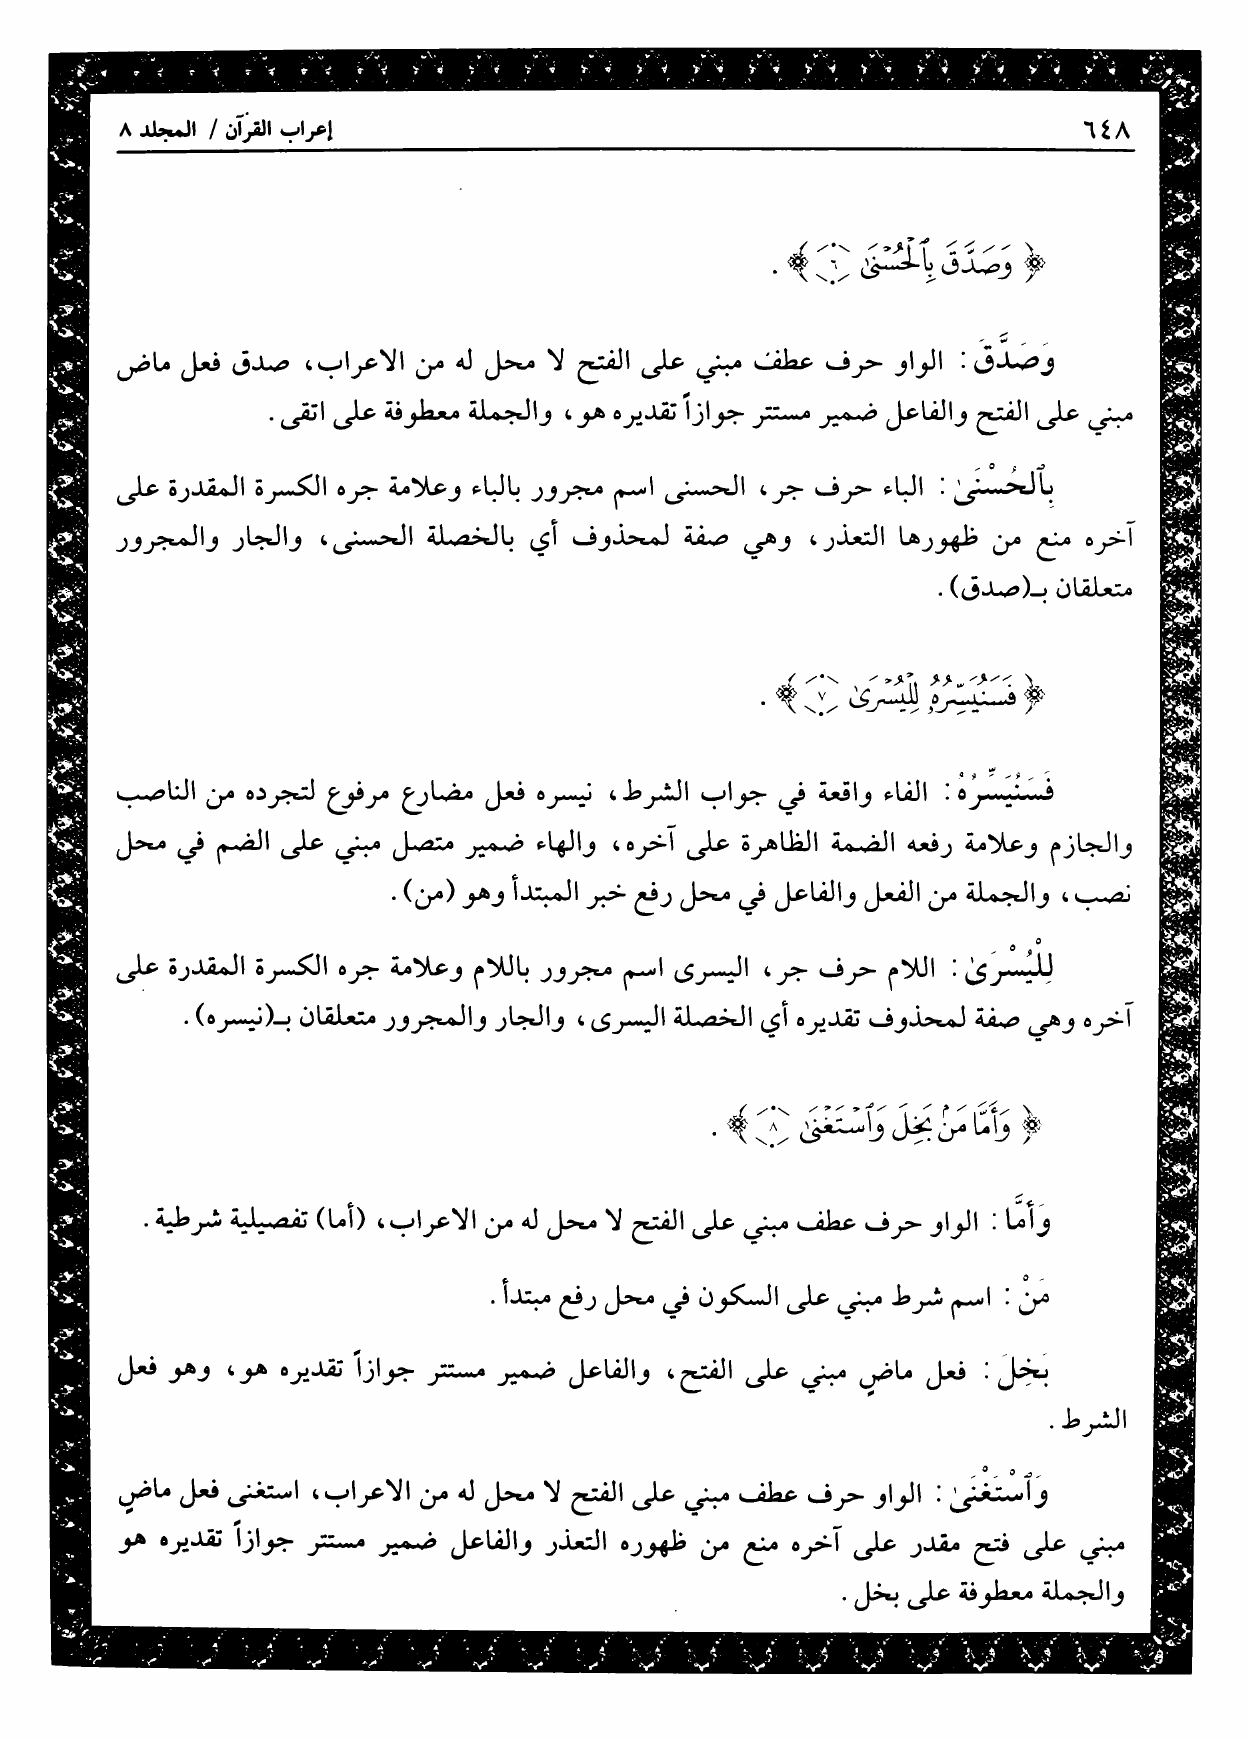 ٦٤٨
إعراب القرآن / المجلد ٨
﴿ وَصَدَّقَ بِٱلْحُسْنَىٰ ٦ ﴾ .
وَصَدَّقَ : الواو حرف عطف مبني على الفتح لا محل له من الاعراب، صدق فعل ماض
مبني على الفتح والفاعل ضمير مستتر جوازاً تقديره هو، والجملة معطوفة على اتقى.
بِٱلْحُسْنَىٰ : الباء حرف جر، الحسنى اسم مجرور بالباء وعلامة جره الكسرة المقدرة على
آخره منع من ظهورها التعذر، وهي صفة لمحذوف أي بالخصلة الحسنى، والجار والمجرور
متعلقان بـ(صدق).
﴿ فَسَنُيَسِّرُهُۥ لِلْيُسْرَىٰ ٧ ﴾ .
فَسَنُيَسِّرُهُ : الفاء واقعة في جواب الشرط، نيسره فعل مضارع مرفوع لتجرده من الناصب
والجازم وعلامة رفعه الضمة الظاهرة على آخره، والهاء ضمير متصل مبني على الضم في محل
نصب، والجملة من الفعل والفاعل في محل رفع خبر المبتدأ وهو (من).
لِلْيُسْرَىٰ : اللام حرف جر، اليسرى اسم مجرور باللام وعلامة جره الكسرة المقدرة على
آخره وهي صفة لمحذوف تقديره أي الخصلة اليسرى، والجار والمجرور متعلقان بـ(نيسره).
﴿ وَأَمَّا مَنۢ بَخِلَ وَٱسْتَغْنَىٰ ٨ ﴾ .
وَأَمَّا : الواو حرف عطف مبني على الفتح لا محل له من الاعراب، (أما) تفصيلية شرطية.
مَنْ : اسم شرط مبني على السكون في محل رفع مبتدأ.
بَخِلَ : فعل ماضٍ مبني على الفتح، والفاعل ضمير مستتر جوازاً تقديره هو، وهو فعل
الشرط.
وَٱسْتَغْنَىٰ : الواو حرف عطف مبني على الفتح لا محل له من الاعراب، استغنى فعل ماضٍ
مبني على فتح مقدر على آخره منع من ظهوره التعذر والفاعل ضمير مستتر جوازاً تقديره هو
والجملة معطوفة على بخل.